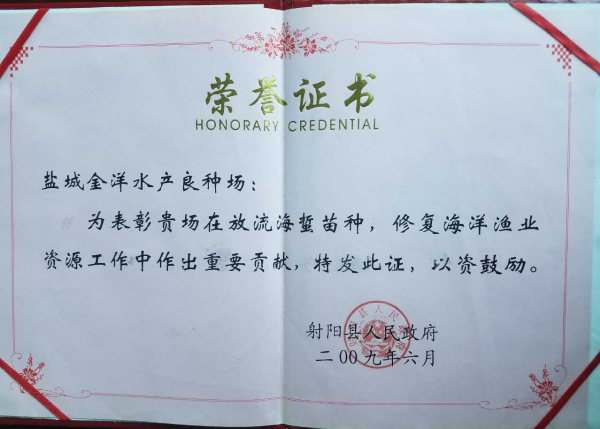 荣誉证书
HONORARY CREDENTIAL
盐城金洋水产良种场：
为表彰贵场在放流海蜇苗种，修复海洋渔业
资源工作中作出重要贡献，特发此证，以资鼓励。
射阳县人民政府
二00九年六月